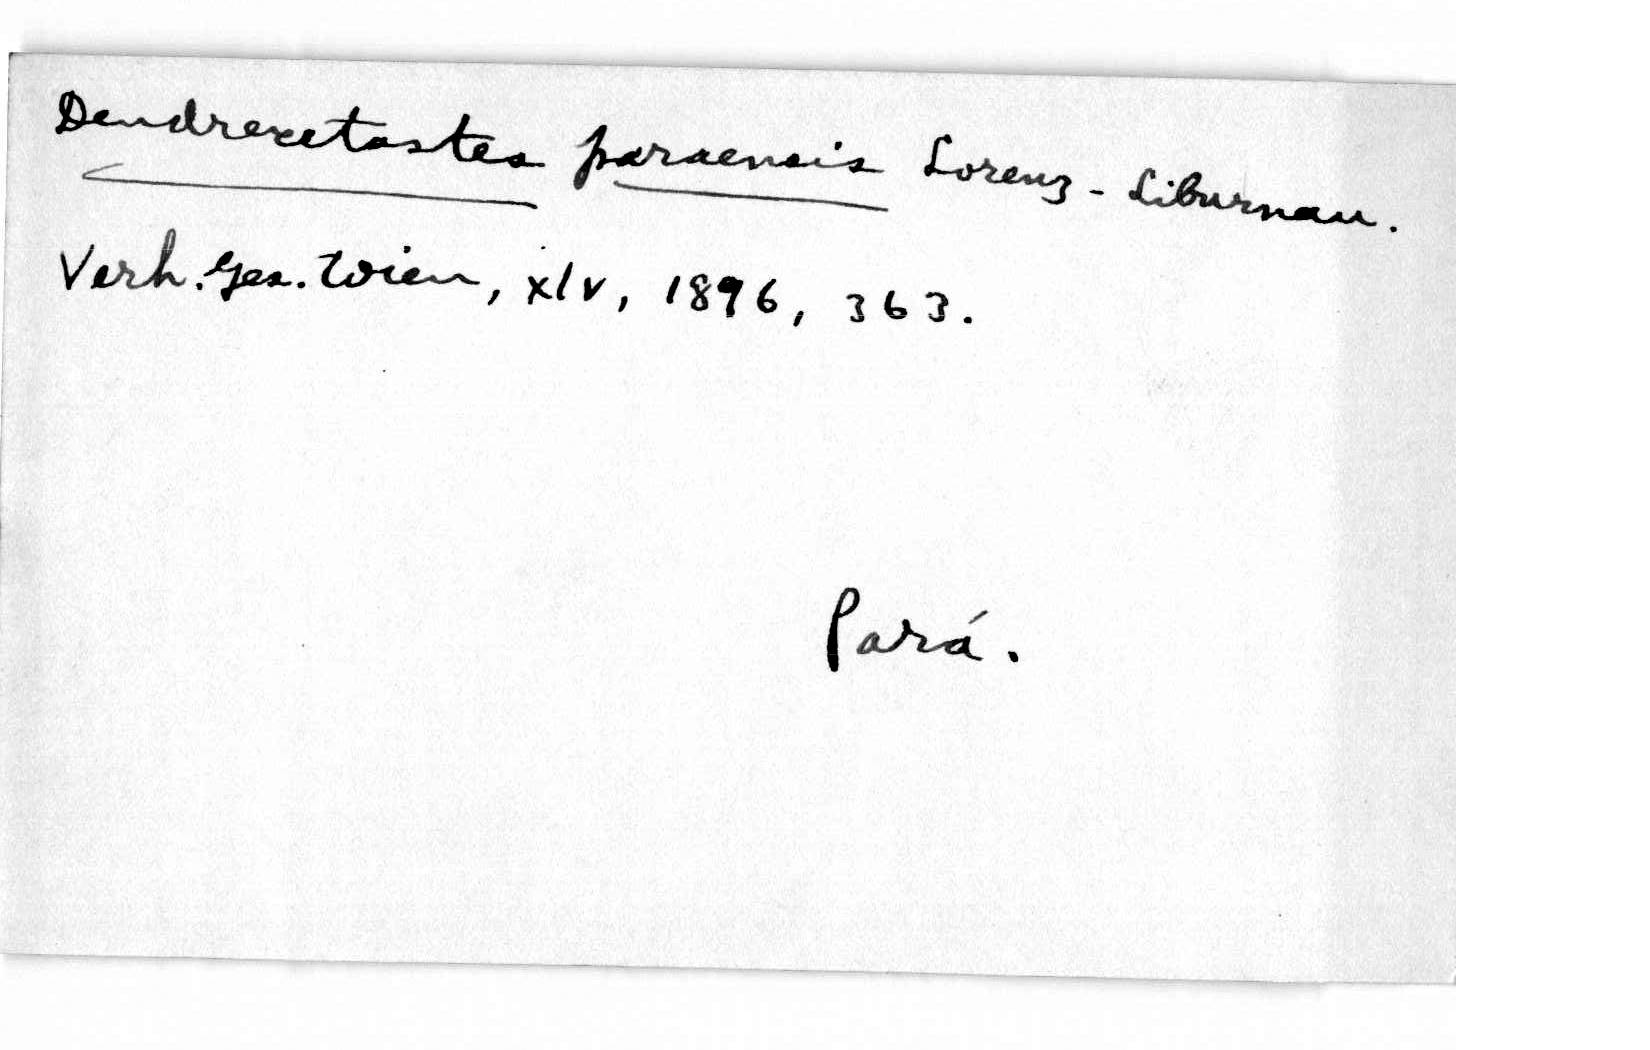 Dendrexetastes paraensis Lorenz-Liburnau.
Verh. Ges. Wien, xlv, 1896, 363.
Pará.